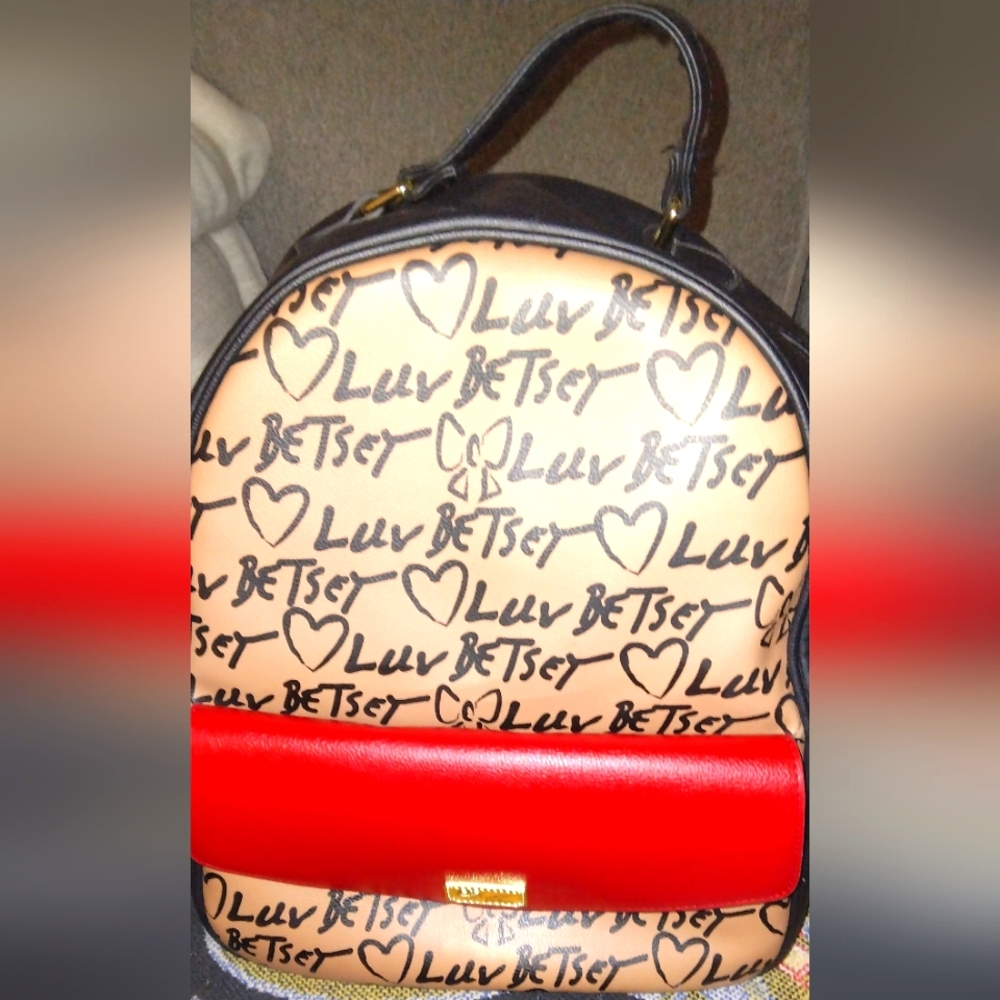 Luv BETSEY
Luv BETSEY
BETSEY Luv BETSEY
Luv BETSEY Luv
BETSEY Luv BETSEY
Luv BETSEY Luv
Luv BETSEY Luv BETSEY
Luv BETSEY Luv BETSEY
BETSEY Luv BETSEY